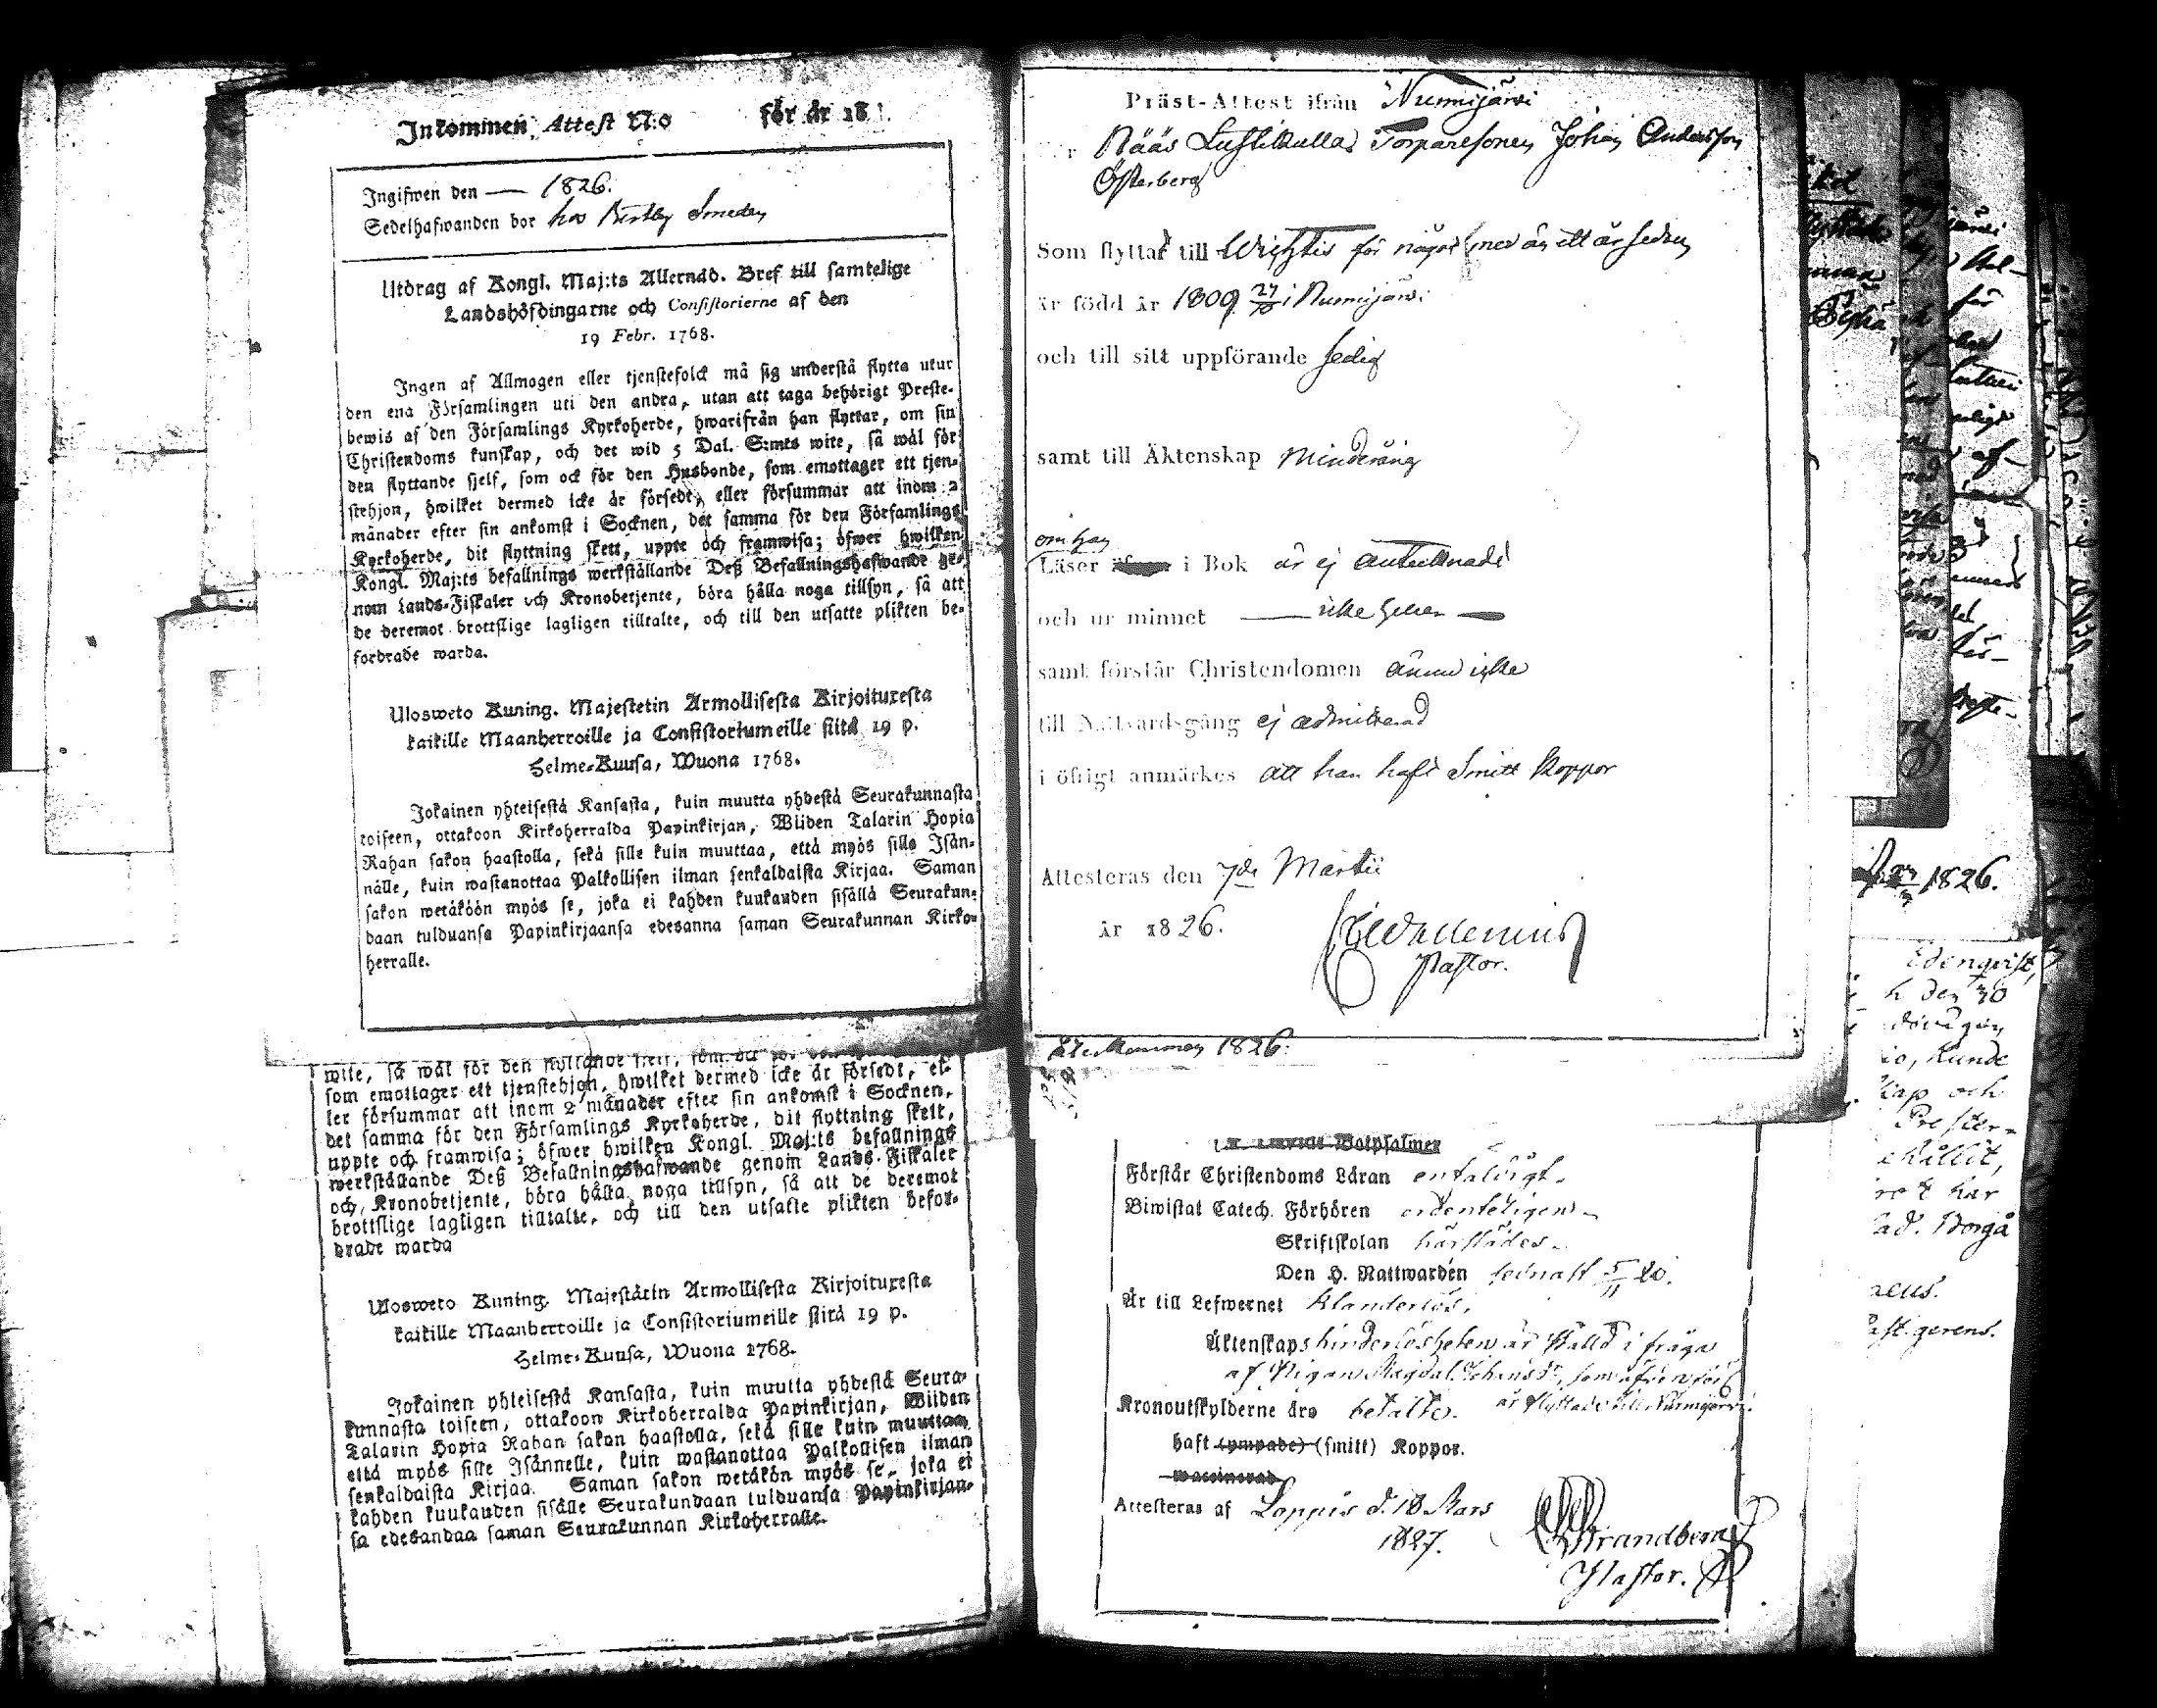 Inkommen Attest N:o för år 18
Ingifwen den — 1826.
Sedelhafwanden bor hos Smeden
Utdrag af Kongl. Maj:ts Allernåd. Bref till samtelige
Landshöfdingarne och Consistorierne af den
19 Febr. 1768.
Ingen af Allmogen eller tjenstefolck må sig understå flytta utur
den ena Församlingen uti den andra, utan att taga behörigt Preste-
bewis af den Församlings Kyrkoherde, hwarifrån han flyttar, om sin
Christendoms kunskap, och det wid 5 Dal. S:mts wite, så wäl för
den flyttande sjelf, som ock för den Husbonde, som emottager ett tjen-
stehjon, hwilket dermed icke är försedt, eller försummar att inom 2
månader efter sin ankomst i Socknen, det samma för den Församlings
Kyrkoherde, dit flyttning skett, uppte och framwisa; öfwer hwilken
Kongl. Maj:ts befallnings werkställande Deß Befallningshafwande ge-
nom Lands-Fiskaler och Kronobetjente, böra hålla noga tillsyn, så att
de deremot brottslige lagligen tilltalte, och till den utsatte plikten be-
fordrade warda.
Ulosweto Kuning. Majestetin Armollisesta Kirjoituxesta
kaikille Maanherroille ja Consistoriumeille siitä 19 p.
Helme-Kuusa, Wuona 1768.
Jokainen yhteisestä Kansasta, kuin muutta yhdestä Seurakunnasta
toiseen, ottakoon Kirkoherralda Papinkirjan, Wiiden Talarin Hopia
Rahan sakon haastolla, sekä sille kuin muuttaa, että myös sille Isän-
nälle, kuin wastanottaa Palkollisen ilman senkaldaista Kirjaa. Saman
sakon wetäköön myös se, joka ei kahden kuukauden sisällä Seurakun-
daan tulduansa Papinkirjaansa edesanna saman Seurakunnan Kirko-
herralle.
wite, så wäl för den flyttande sjelf, som
som emottager ett tjenstehjon, hwilket dermed icke är försedt, el-
ler försummar att inom 2 månader efter sin ankomst i Socknen,
det samma för den Församlings Kyrkoherde, dit flyttning skett,
uppte och framwisa; öfwer hwilken Kongl. Maj:ts befallnings
werkställande Deß Befallningshafwande genom Lands-Fiskaler
och Kronobetjente, böra hålla noga tillsyn, så att de deremot
brottslige lagligen tilltalte, och till den utsatte plikten befor-
drade warda
Ulosweto Kuning. Majestätin Armollisesta Kirjoituxesta
kaikille Maanherroille ja Consistoriumeille siitä 19 p.
Helme-Kuusa, Wuona 1768.
Jokainen yhteisestä Kansasta, kuin muutta yhdestä Seura-
kunnasta toiseen, ottakoon Kirkoherralda Papinkirjan, Wiiden
Talarin Hopia Rahan sakon haastolla, sekä sille kuin muuttaa,
että myös sille Isännelle, kuin wastanottaa Palkollisen ilman
senkaldaista Kirjaa. Saman sakon wetäkön myös se, joka ei
kahden kuukauden sisälle Seurakundaan tulduansa Papinkirjan-
sa edesandaa saman Seurakunnan Kirkoherralle.
Präst-Attest ifrån Nurmijärvi
Nääs Torparesonen Johan Andersson
Österberg
Som flyttat till Wichtis för något mer än ett år sedan
är född år 1809 27/10 i Nurmijärvi
och till sitt uppförande sedig
samt till Äktenskap Minderårig
om han
Läser i Bok är ej antecknadt
och ur minnet — icke heller —
samt förstår Christendomen ännu icke
till Nattvardsgång ej admitterad
i öfrigt anmärkes att han haft Smitt Koppor
Attesteras den 7de Martii
år 1826.
Pastor.
Återkommen 1826.
Förstår Christendoms Läran enfaldigt.
Biwistat Catech. Förhören ordenteligen
Skriftskolan härstädes.
Den H. Nattwarden sednast 5/11 26.
Är till Lefwernet klanderlös.
Äktenskaps hinderlösheten är ställd i fråga
af Pigan Magdal. Johansdr, som äfven förs
är flyttad till Nurmijärvi.
Kronoutskylderne äro betalte.
haft (ympade) (smitt) Koppor.
waccinerad
Attesteras af Loppis d. 18 Mars
1827.
Strandberg
Pastor.
1826.
Edenqvist,
h den
kunde
kap och
Prester-
hållit,
har
ad. Borgå
Past. gerens.